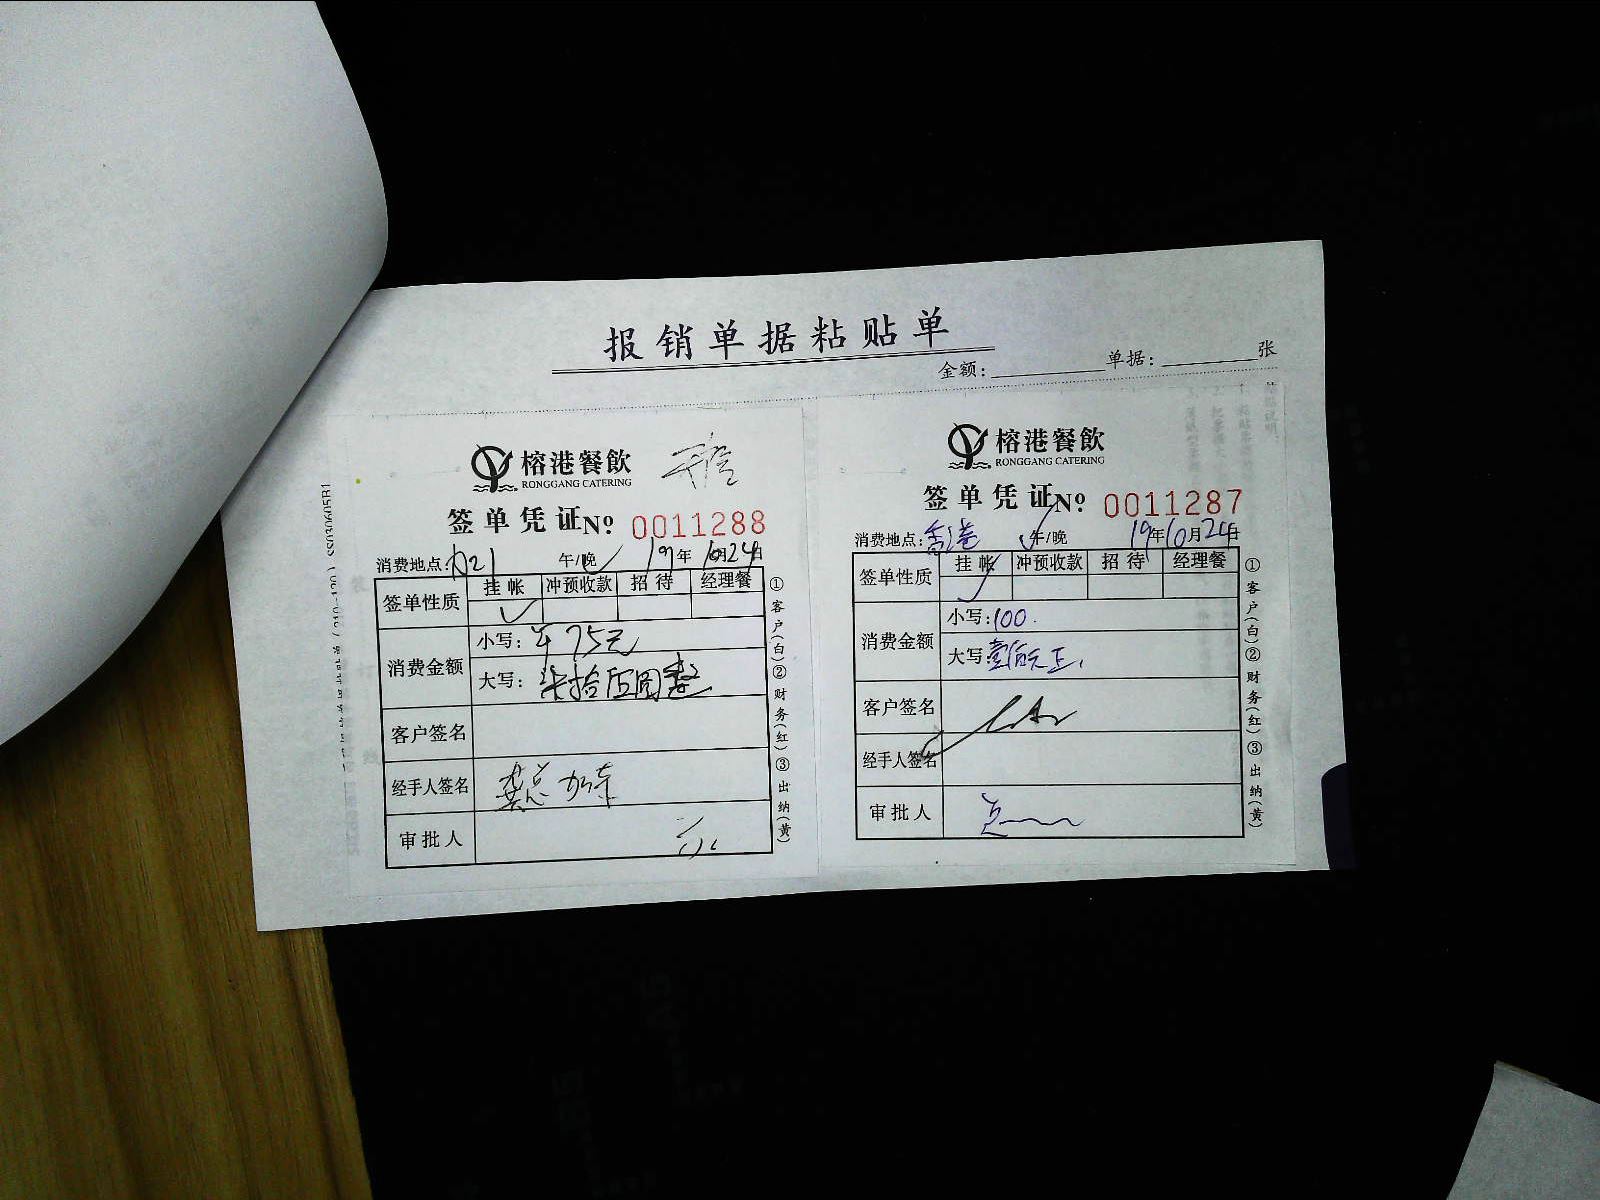 报销单据粘贴单
金额: 单据: 张
榕港餐飲
RONGGANG CATERING
签单凭证 № 0011288
消费地点: 午/晚 19年10月24日
签单性质 挂帐 冲预收款 招待 经理餐
消费金额 小写: 75元
大写: 柒拾伍圆整
客户签名
经手人签名
审批人
①客户(白)②财务(红)③出纳(黄)
榕港餐飲
RONGGANG CATERING
签单凭证 № 0011287
消费地点: 香港 午/晚 19年10月24日
签单性质 挂帐 冲预收款 招待 经理餐
消费金额 小写: 100.
大写: 壹佰元正
客户签名
经手人签名
审批人
①客户(白)②财务(红)③出纳(黄)